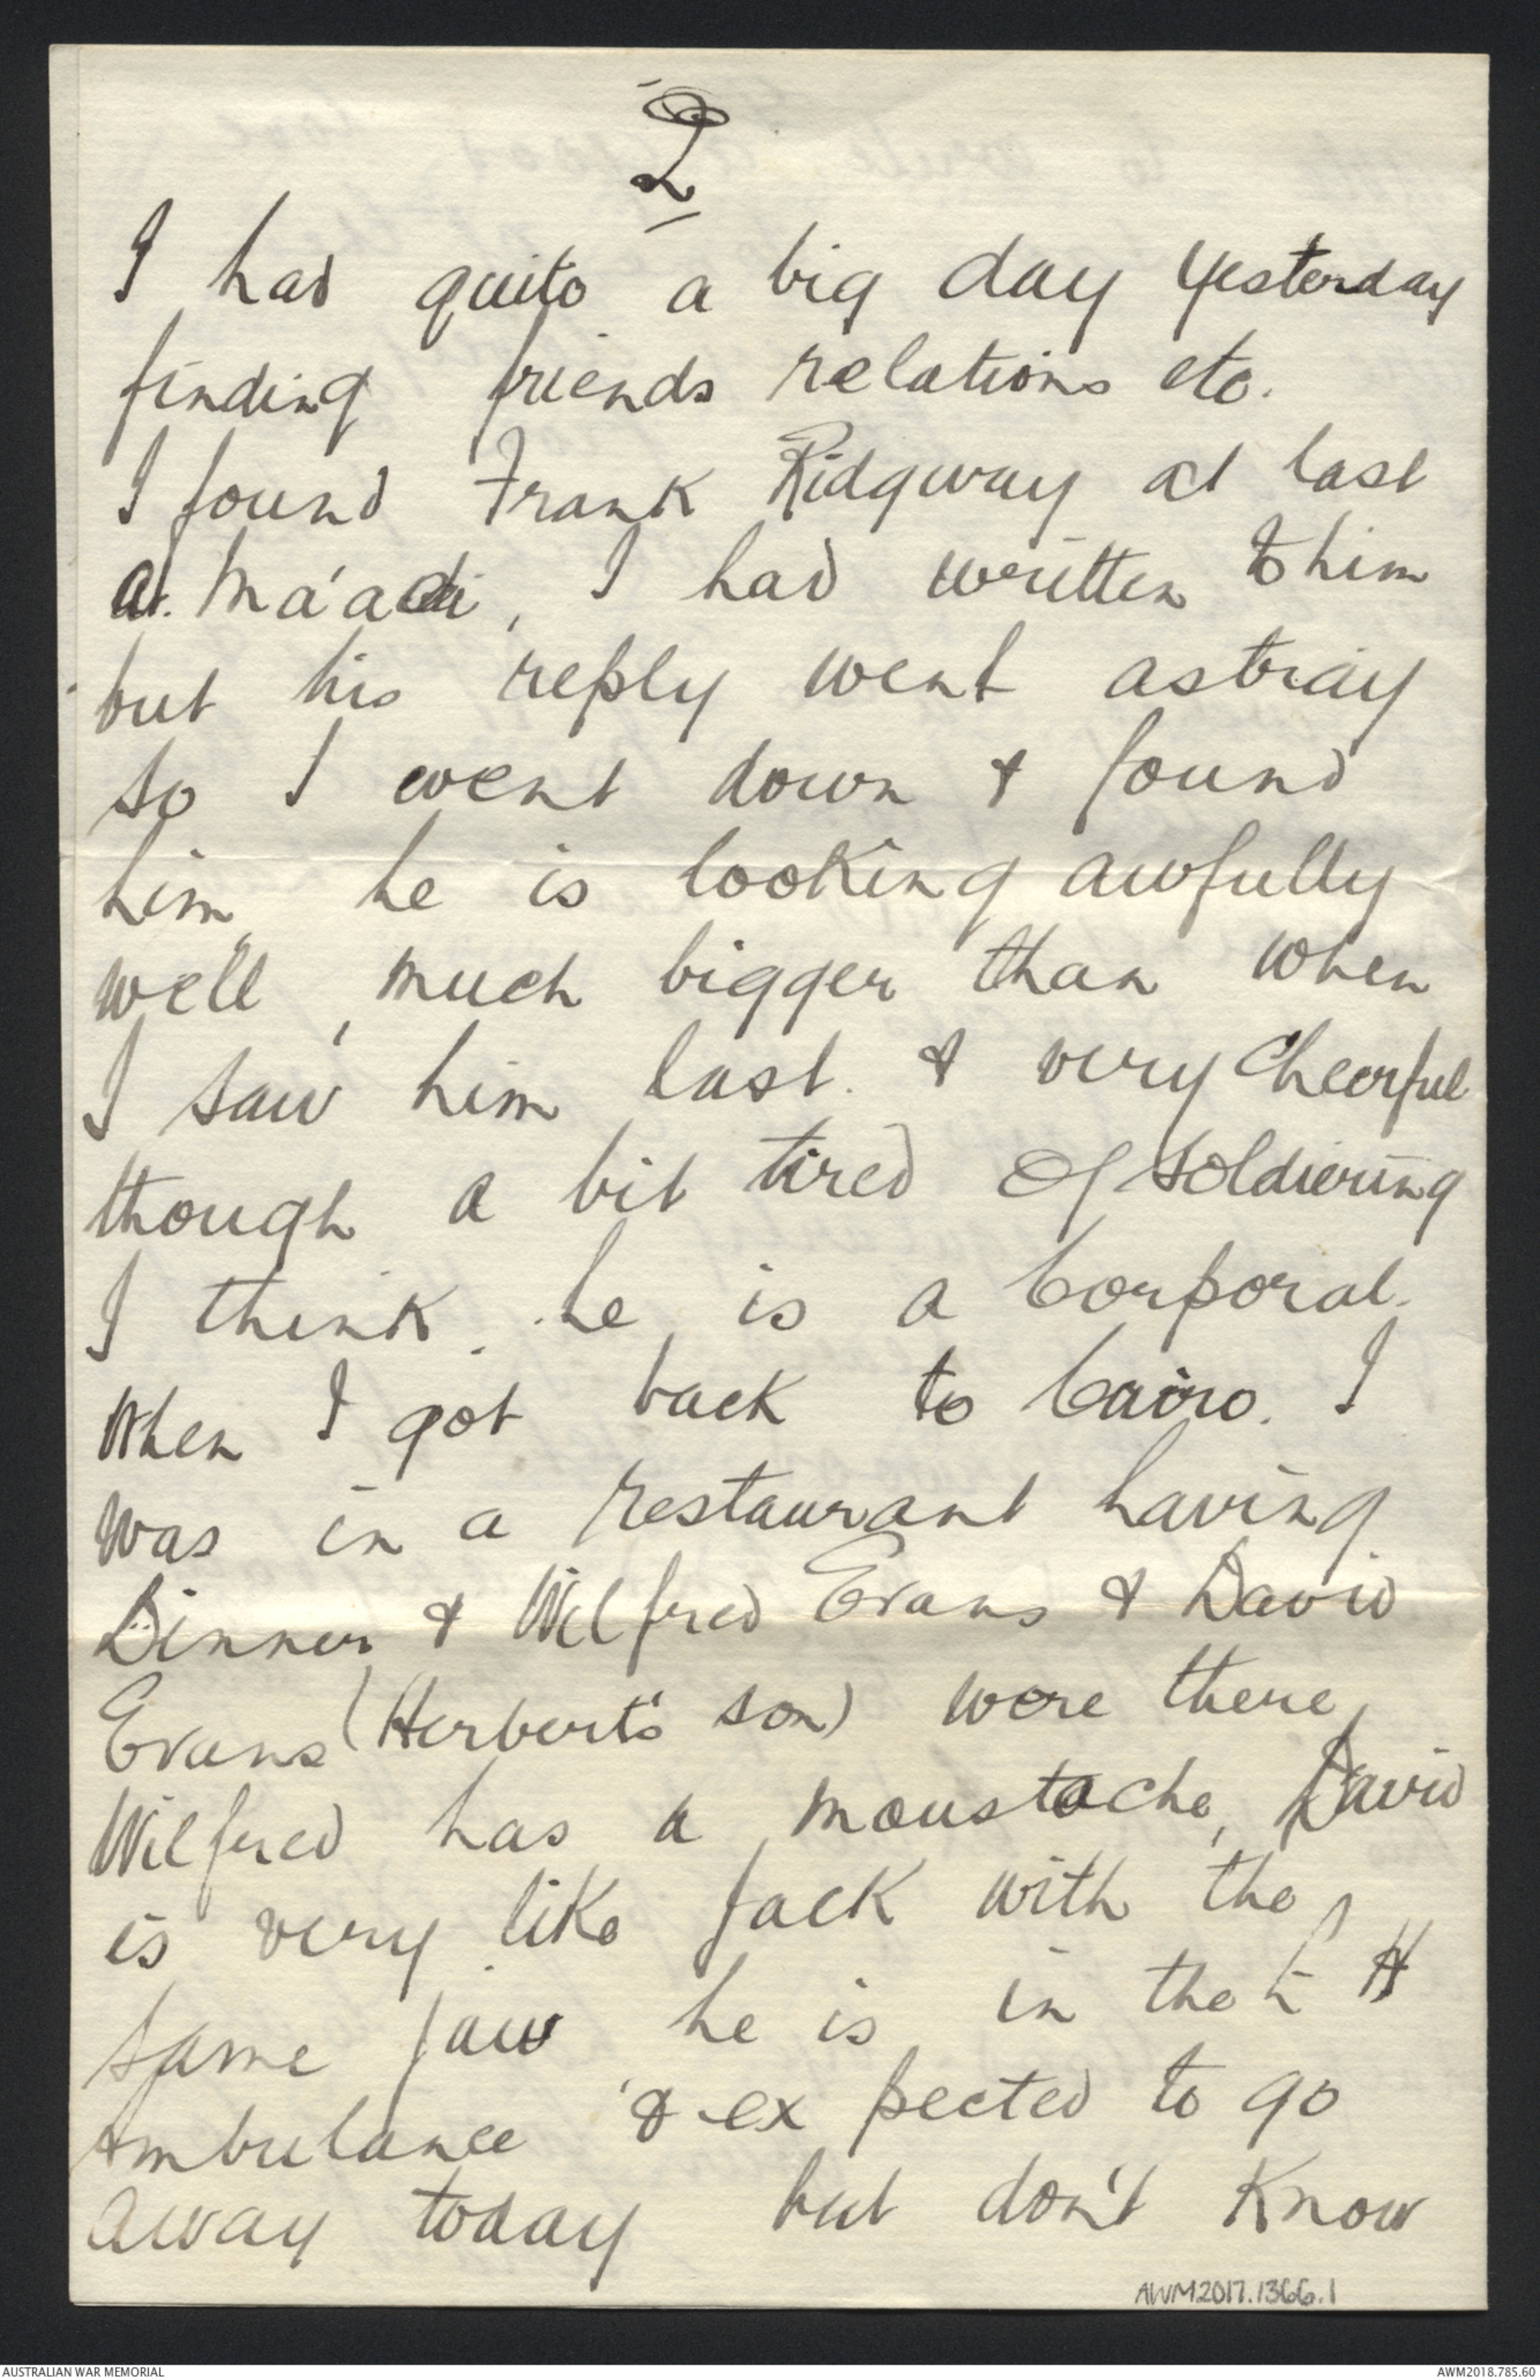 2
I had quite a big day yesterday
finding friends relations etc.
I found Frank Ridgway at last
at Ma'adi, I had written to him
but his reply went astray
so I went down & found
him, he is looking awfully
well, much bigger than when
I saw him last. & very cheerful
though a bit tired of soldiering
I think. he is a Corporal.
When I got back to Cairo. I
was in a restaurant having
Dinner & Wilfred Evans & David
Evans (Herbert's son) were there,
Wilfred has a moustache, David
is very like Jack with the
same jaw he is in the L H
Ambulance & expected to go
away today but don't know
AWM2017.1366.1
AUSTRALIAN WAR MEMORIAL
AWM2018.785.60